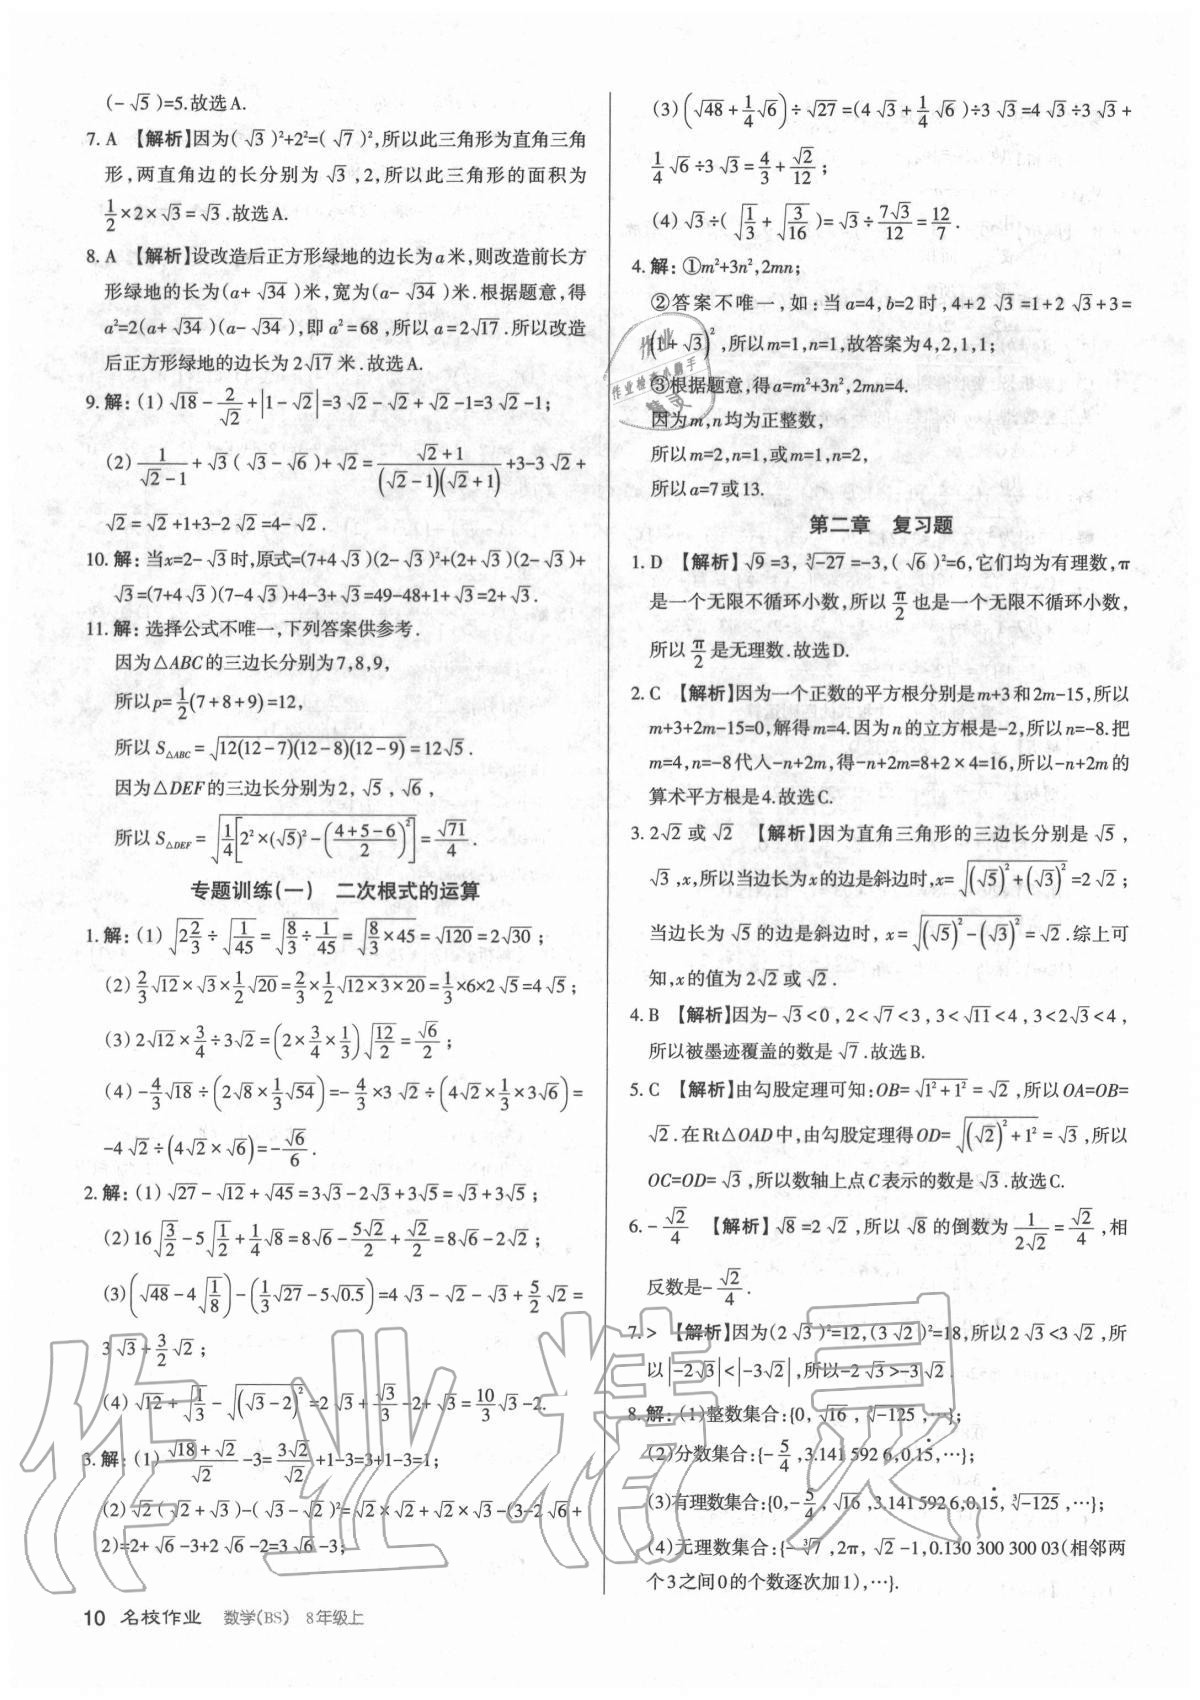 (-√5)=5.故选A.
7. A 【解析】因为(√3)²+2²=(√7)²,所以此三角形为直角三角
形,两直角边的长分别为√3,2,所以此三角形的面积为
1/2×2×√3=√3.故选A.
8. A 【解析】设改造后正方形绿地的边长为a米,则改造前长方
形绿地的长为(a+√34)米,宽为(a-√34)米.根据题意,得
a²=2(a+√34)(a-√34),即a²=68,所以a=2√17.所以改造
后正方形绿地的边长为2√17米.故选A.
9. 解:(1)√18-2/√2+|1-√2|=3√2-√2+√2-1=3√2-1;
(2)1/(√2-1)+√3(√3-√6)+√2=(√2+1)/((√2-1)(√2+1))+3-3√2+
√2=√2+1+3-2√2=4-√2.
10. 解:当x=2-√3时,原式=(7+4√3)(2-√3)²+(2+√3)(2-√3)+
√3=(7+4√3)(7-4√3)+4-3+√3=49-48+1+√3=2+√3.
11. 解:选择公式不唯一,下列答案供参考.
因为△ABC的三边长分别为7,8,9,
所以p=1/2(7+8+9)=12,
所以S△ABC=√(12(12-7)(12-8)(12-9))=12√5.
因为△DEF的三边长分别为2,√5,√6,
所以S△DEF=√(1/4[2²×(√5)²-((4+5-6)/2)²])=√71/4.
专题训练(一) 二次根式的运算
1. 解:(1)√(2 2/3)÷√(1/45)=√(8/3÷1/45)=√(8/3×45)=√120=2√30;
(2)2/3√12×√3×1/2√20=2/3×1/2√(12×3×20)=1/3×6×2√5=4√5;
(3)2√12×3/4÷3√2=(2×3/4×1/3)√(12/2)=√6/2;
(4)-4/3√18÷(2√8×1/3√54)=-4/3×3√2÷(4√2×1/3×3√6)=
-4√2÷(4√2×√6)=-√6/6.
2. 解:(1)√27-√12+√45=3√3-2√3+3√5=√3+3√5;
(2)16√(3/2)-5√(1/2)+1/4√8=8√6-5√2/2+√2/2=8√6-2√2;
(3)(√48-4√(1/8))-(1/3√27-5√0.5)=4√3-√2-√3+5/2√2=
3√3+3/2√2;
(4)√12+√(1/3)-√((√3-2)²)=2√3+√3/3-2+√3=10/3√3-2.
3. 解:(1)(√18+√2)/√2-3=3√2/√2+1-3=3+1-3=1;
(2)√2(√2+√3)-(√3-√2)²=√2×√2+√2×√3-(3-2√6+
2)=2+√6-3+2√6-2=3√6-3;
10 名校作业 数学(BS) 8年级上
(3)(√48+1/4√6)÷√27=(4√3+1/4√6)÷3√3=4√3÷3√3+
1/4√6÷3√3=4/3+√2/12;
(4)√3÷(√(1/3)+√(3/16))=√3÷7√3/12=12/7.
4. 解:①m²+3n²,2mn;
②答案不唯一,如:当a=4,b=2时,4+2√3=1+2√3+3=
(1+√3)²,所以m=1,n=1,故答案为4,2,1,1;
③根据题意,得a=m²+3n²,2mn=4.
因为m,n均为正整数,
所以m=2,n=1,或m=1,n=2,
所以a=7或13.
第二章 复习题
1. D 【解析】√9=3,³√-27=-3,(√6)²=6,它们均为有理数,π
是一个无限不循环小数,所以π/2也是一个无限不循环小数,
所以π/2是无理数.故选D.
2. C 【解析】因为一个正数的平方根分别是m+3和2m-15,所以
m+3+2m-15=0,解得m=4.因为n的立方根是-2,所以n=-8.把
m=4,n=-8代入-n+2m,得-n+2m=8+2×4=16,所以-n+2m的
算术平方根是4.故选C.
3. 2√2或√2 【解析】因为直角三角形的三边长分别是√5,
√3,x,所以当边长为x的边是斜边时,x=√((√5)²+(√3)²)=2√2;
当边长为√5的边是斜边时,x=√((√5)²-(√3)²)=√2.综上可
知,x的值为2√2或√2.
4. B 【解析】因为-√3<0,2<√7<3,3<√11<4,3<2√3<4,
所以被墨迹覆盖的数是√7.故选B.
5. C 【解析】由勾股定理可知:OB=√(1²+1²)=√2,所以OA=OB=
√2.在Rt△OAD中,由勾股定理得OD=√((√2)²+1²)=√3,所以
OC=OD=√3,所以数轴上点C表示的数是√3.故选C.
6. -√2/4 【解析】√8=2√2,所以√8的倒数为1/(2√2)=√2/4,相
反数是-√2/4.
7. > 【解析】因为(2√3)²=12,(3√2)²=18,所以2√3<3√2,所
以|-2√3|<|-3√2|,所以-2√3>-3√2.
8. 解:(1)整数集合:{0,√16,³√-125,…};
(2)分数集合:{-5/4,3.141 592 6,0.15̇,…};
(3)有理数集合:{0,-5/4,√16,3.141 592 6,0.15̇,³√-125,…};
(4)无理数集合:{-³√7,2π,√2-1,0.130 300 300 03(相邻两
个3之间0的个数逐次加1),…}.
作业
作业检查小助手
精灵
作业精灵